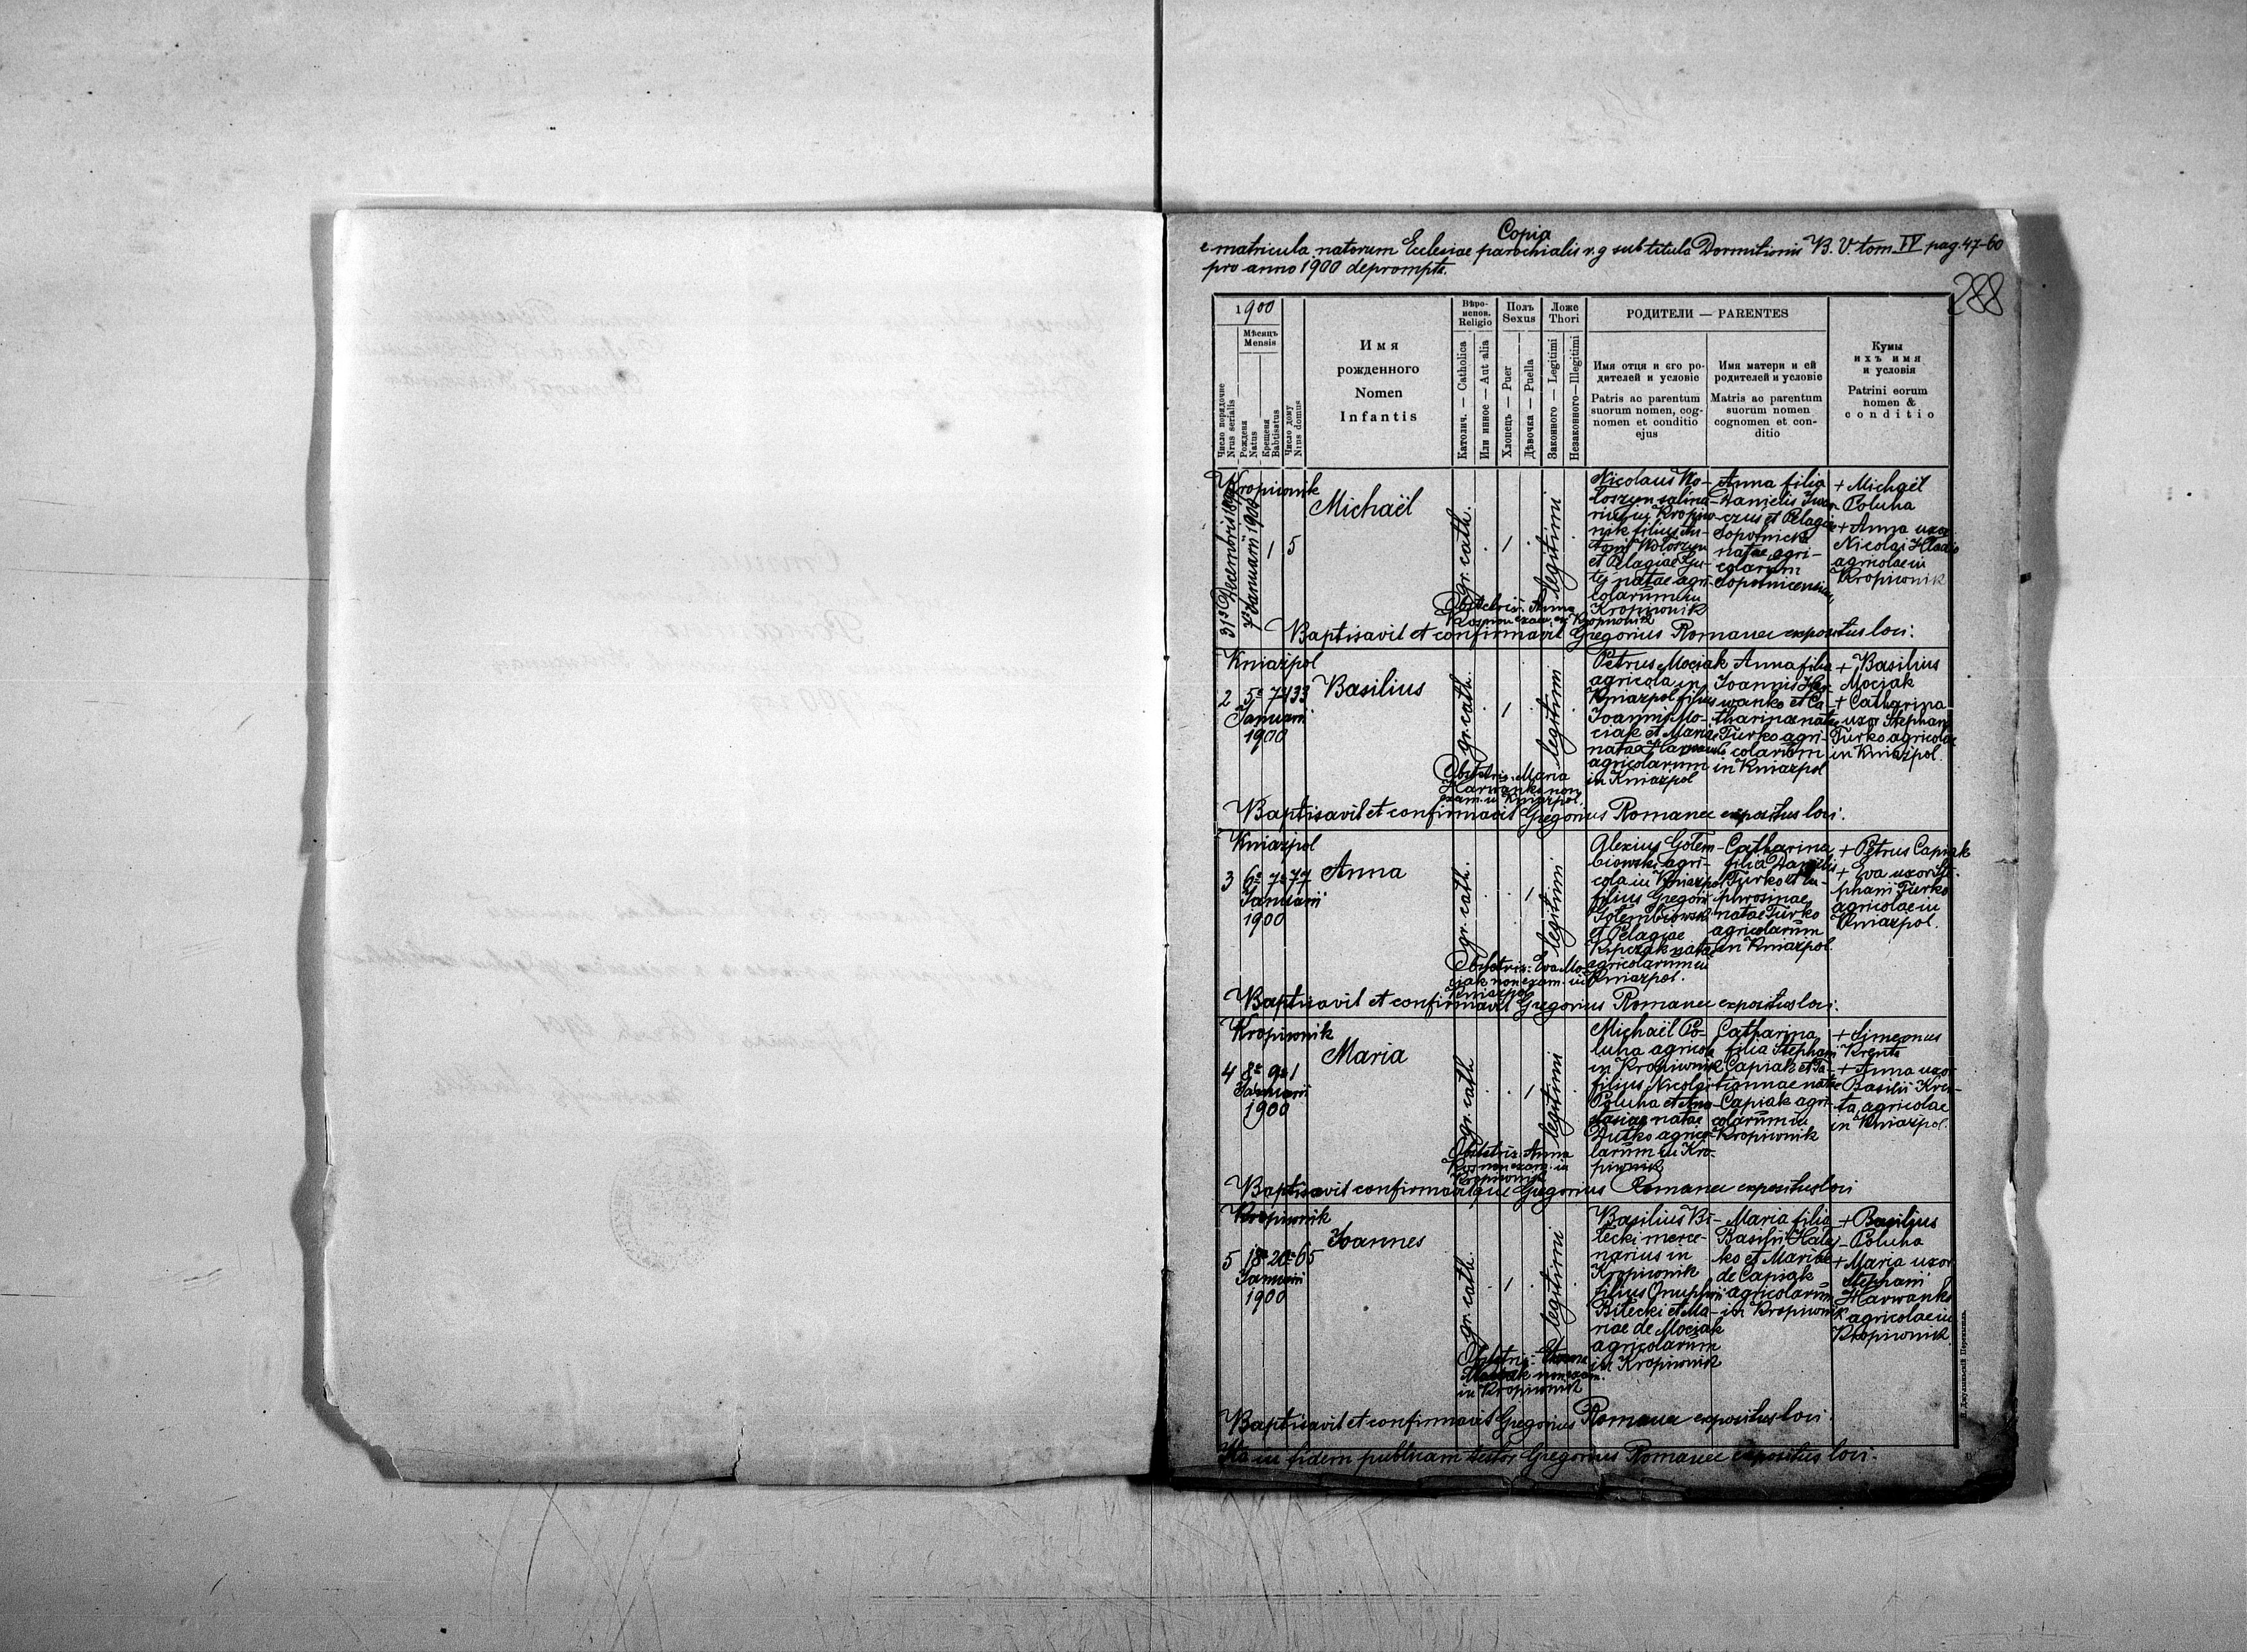 Copia
e matricula natorum Ecclesiae parochialis r. g sub titula Dormitionis B. V. tom IV pag. 47-60
pro anno 1900 deprompta.
288
1900
Мѣсяцъ
Mensis
Число порядочне
Nrus serialis
Рождена
Natus
Крещена
Babtisatus
Число дому
Nrus domus
Имя
рожденного
Nomen
Infantis
Вѣро-
испов.
Religio
Католич. — Catholica
Или инное — Aut alia
Полъ
Sexus
Хлопецъ — Puer
Дѣвочка — Puella
Ложе
Thori
Законного — Legitimi
Незаконного — Illegitimi
РОДИТЕЛИ — PARENTES
Имя отця и єго ро-
дителей и условіє
Patris ac parentum
suorum nomen, cog-
nomen et conditio
ejus
Имя матери и ей
родителей и условіє
Matris ac parentum
suorum nomen
cognomen et con-
ditio
Кумы
ихъ имя
и условія
Patrini eorum
nomen &
conditio
Kropiwnik
31 Decembris
Januarii
1 5
Michaël
gr. cath.
1
legitimi
Nicolaus Wo-
łoszyn salina-
nik filius An-
tonii Wołoszyn
et Pelagiae
natae agri-
colarum in
Kropiwnik
Anna filia
Danielis
et Pelagiae
natae agri-
colarum
+ Michaël
Poluha
+ Anna uxor
Nicolai
agricolae in
Kropiwnik
Obstetrix: Anna
Baptisavit et confirmavit Gregorius Romanec expositus loci.
Kniażpol
2 5 7 133
Januarii
1900
Basilius
gr. cath.
1
legitimi
Petrus Mociak
agricola in
Kniażpol filius
Joannis Mo-
ciak et Mariae
natae
agricolarum
in Kniażpol
Anna filia
Joannis Har-
wanko et Ca-
tharinae natae
Turko agri-
colarum
in Kniażpol
+ Basilius
Mociak
+ Catharina
uxor Stephani
Turko agricolae
in Kniażpol.
Obstetrix: Maria
Harwanko non
exam. in Kniażpol.
Baptisavit et confirmavit Gregorius Romanec expositus loci.
Kniażpol
3 6 7 77
Januarii
1900
Anna
gr. cath.
1
legitimi
Alexius Gołem-
biowski agri-
cola in Kniażpol
filius Gregorii
Gołembiowski
et Pelagiae
natae
agricolarum in
Kniażpol.
Catharina
filia Danielis
Turko et Eu-
phrosinae
natae Turko
agricolarum
in Kniażpol.
+ Petrus Capiak
+ Eva uxor Ste-
phani Turko
agricolae in
Kniażpol.
Obstetrix: Eva Mo-
ciak non exam. in
Kniażpol
Baptisavit et confirmavit Gregorius Romanec expositus loci.
Kropiwnik
4 8 9 1
Januarii
1900
Maria
gr. cath
1
legitimi
Michaël Po-
luha agricola
in Kropiwnik
filius Nicolai
Poluha et Ana-
stasiae natae
Dutko agrico-
larum in Kro-
piwnik
Catharina
filia Stephani
Capiak et Ta-
tiannae natae
Capiak agri-
colarum in
Kropiwnik
+ Simeonus
Krenta
+ Anna uxor
Basilii Kren-
ta, agricolae
in Kniażpol.
Obstetrix: Anna
non exam. in
Kropiwnik
Baptisavit confirmavitque Gregorius Romanec expositus loci
Kropiwnik
5 18 20 65
Januarii
1900
Joannes
gr. cath.
1
legitimi
Basilius Bi-
lecki merce-
narius in
Kropiwnik
filius Onuphrii
Bilecki et Ma-
riae de Mociak
agricolarum
in Kropiwnik
Maria filia
Basilii
ko et Mariae
de Capiak
agricolarum
in Kropiwnik
+ Basilius
Poluha
+ Maria uxor
Stephani
Harwanko
agricolae in
Kropiwnik
Obstetrix:
non exam.
in Kropiwnik
Baptisavit et confirmavit Gregorius Romanec expositus loci.
Ita in fidem publicam testor Gregorius Romanec expositus loci.